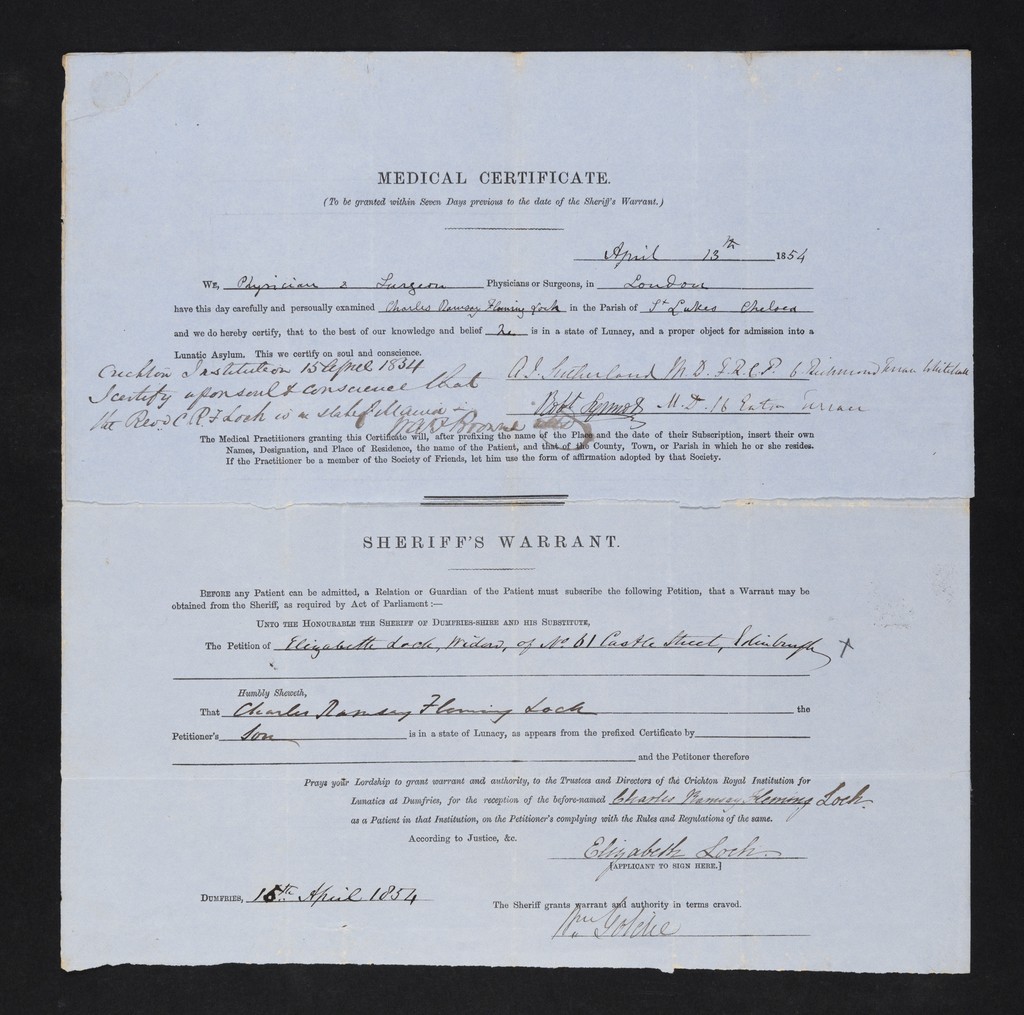 MEDICAL CERTIFICATE.
(To be granted within Seven Days previous to the date of the Sheriff's Warrant.)
April 13th 1854
We, Physician & Surgeon Physicians or Surgeons, in London
have this day carefully and personally examined Charles Ramsay Fleming Loch in the Parish of St Lukes Chelsea
and we do hereby certify, that to the best of our knowledge and belief he is in a state of Lunacy, and a proper object for admission into a
Lunatic Asylum. This we certify on soul and conscience.
A. J. Sutherland M.D. F.R.C.P. 6 Richmond Terrace Whitehall
M.D. 16 Eaton Terrace
Crichton Institution 15 April 1854
I certify upon soul & conscience that
the Revd C R F Loch is in state of Mania
WAF Browne
The Medical Practitioners granting this Certificate will, after prefixing the name of the Place and the date of their Subscription, insert their own
Names, Designation, and Place of Residence, the name of the Patient, and that of the County, Town, or Parish in which he or she resides.
If the Practitioner be a member of the Society of Friends, let him use the form of affirmation adopted by that Society.
SHERIFF'S WARRANT.
Before any Patient can be admitted, a Relation or Guardian of the Patient must subscribe the following Petition, that a Warrant may be
obtained from the Sheriff, as required by Act of Parliament:—
Unto the Honourable the Sheriff of Dumfries-shire and his Substitute,
The Petition of Elizabeth Loch, Widow, of No 61 Castle Street, Edinburgh x
Humbly Sheweth,
That Charles Ramsay Fleming Loch the
Petitioner's Son is in a state of Lunacy, as appears from the prefixed Certificate by
and the Petitioner therefore
Prays your Lordship to grant warrant and authority, to the Trustees and Directors of the Crichton Royal Institution for
Lunatics at Dumfries, for the reception of the before-named Charles Ramsay Fleming Loch.
as a Patient in that Institution, on the Petitioner's complying with the Rules and Regulations of the same.
According to Justice, &c.
Elizabeth Loch.
[APPLICANT TO SIGN HERE.]
Dumfries, 15th April 1854
The Sheriff grants warrant and authority in terms craved.
Wm Goldie